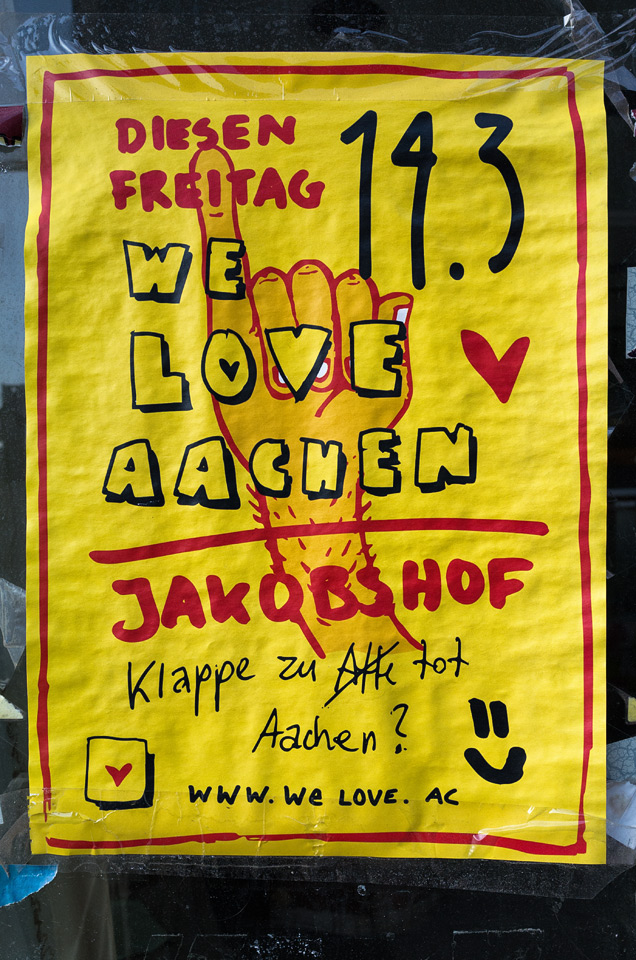 DIESEN
FREITAG
14.3
WE
LOVE
AACHEN
JAKOBSHOF
Klappe zu Affe tot
Aachen?
www.we LOVE. AC